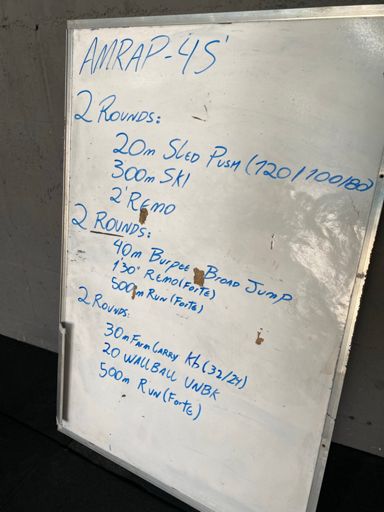 AMRAP-45'
2 ROUNDS:
20m SLED PUSH (120/100/80)
300m SKI
2' REMO
2 ROUNDS:
40m BURPEE BROAD JUMP
1'30" REMO (FORTE)
500m RUN (FORTE)
2 ROUNDS:
30m FARM CARRY Kb (32/24)
20 WALLBALL UNBK
500m RUN (FORTE)